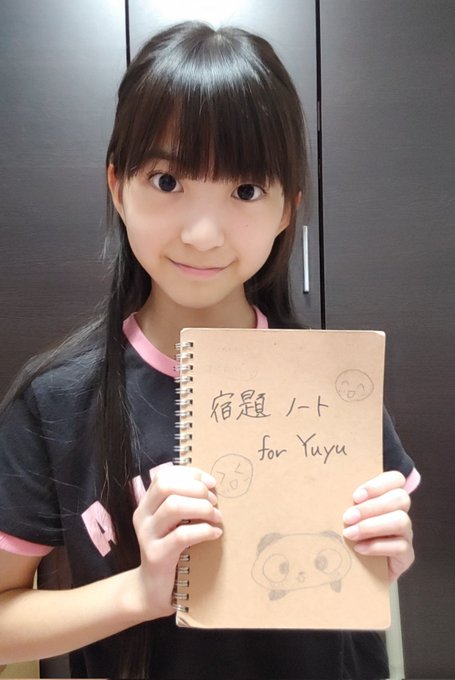 宿題 ノート
for Yuyu